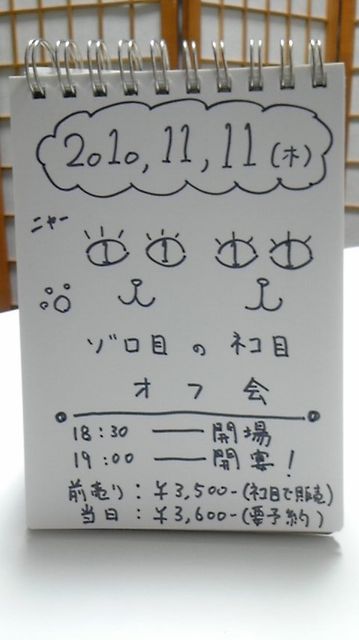 2010,11,11(木)
ニャー
ゾロ目のネコ目
オフ会
18:30 ── 開場
19:00 ── 開宴!
前売り:¥3,500-(ネコ目で販売)
当日:¥3,600-(要予約)